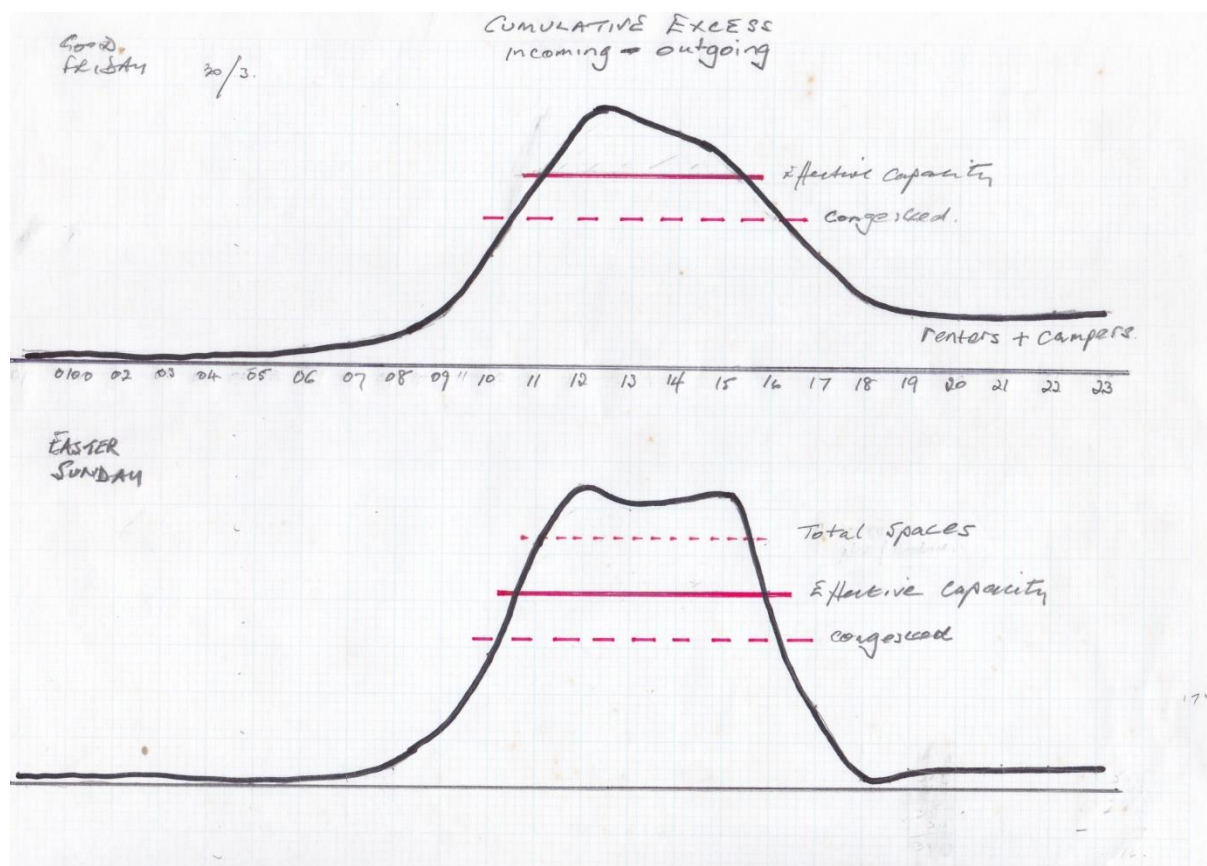 CUMULATIVE EXCESS
incoming - outgoing
GOOD
FRIDAY 30/3.
Effective Capacity
congested.
renters + campers.
0100 02 03 04 05 06 07 08 09 10 11 12 13 14 15 16 17 18 19 20 21 22 23
EASTER
SUNDAY
Total Spaces
Effective Capacity
congested